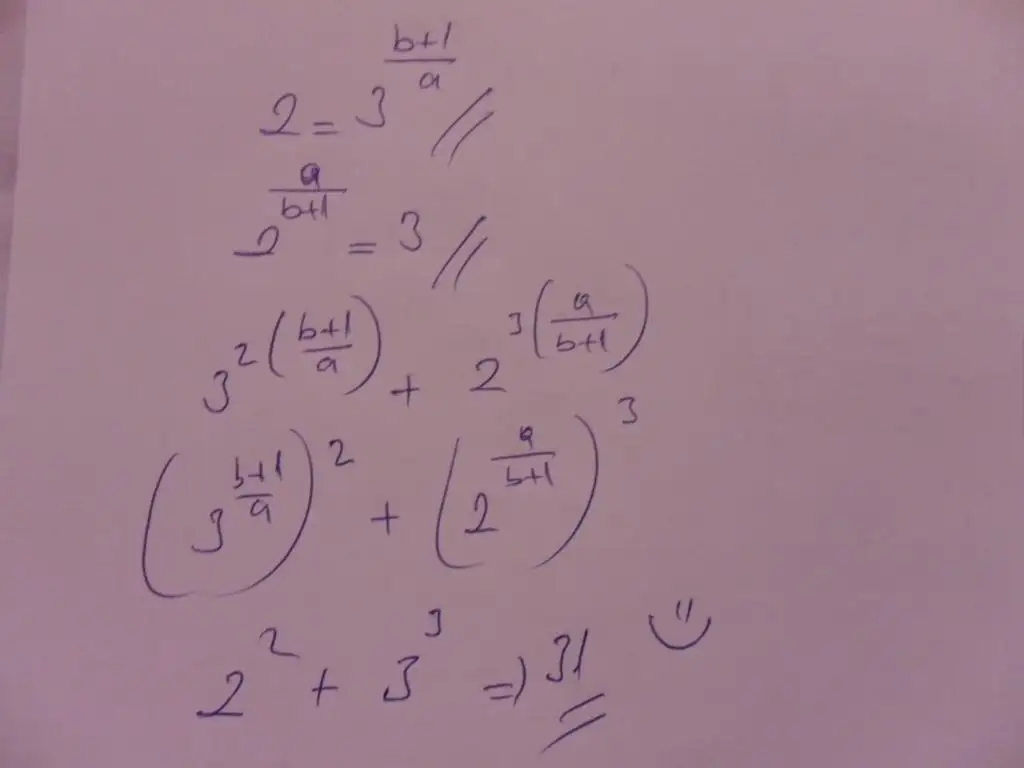 2 = 3^((b+1)/a) //
2^(a/(b+1)) = 3 //
3^(2((b+1)/a)) + 2^(3(a/(b+1)))
(3^((b+1)/a))^2 + (2^(a/(b+1)))^3
2^2 + 3^3 => 31